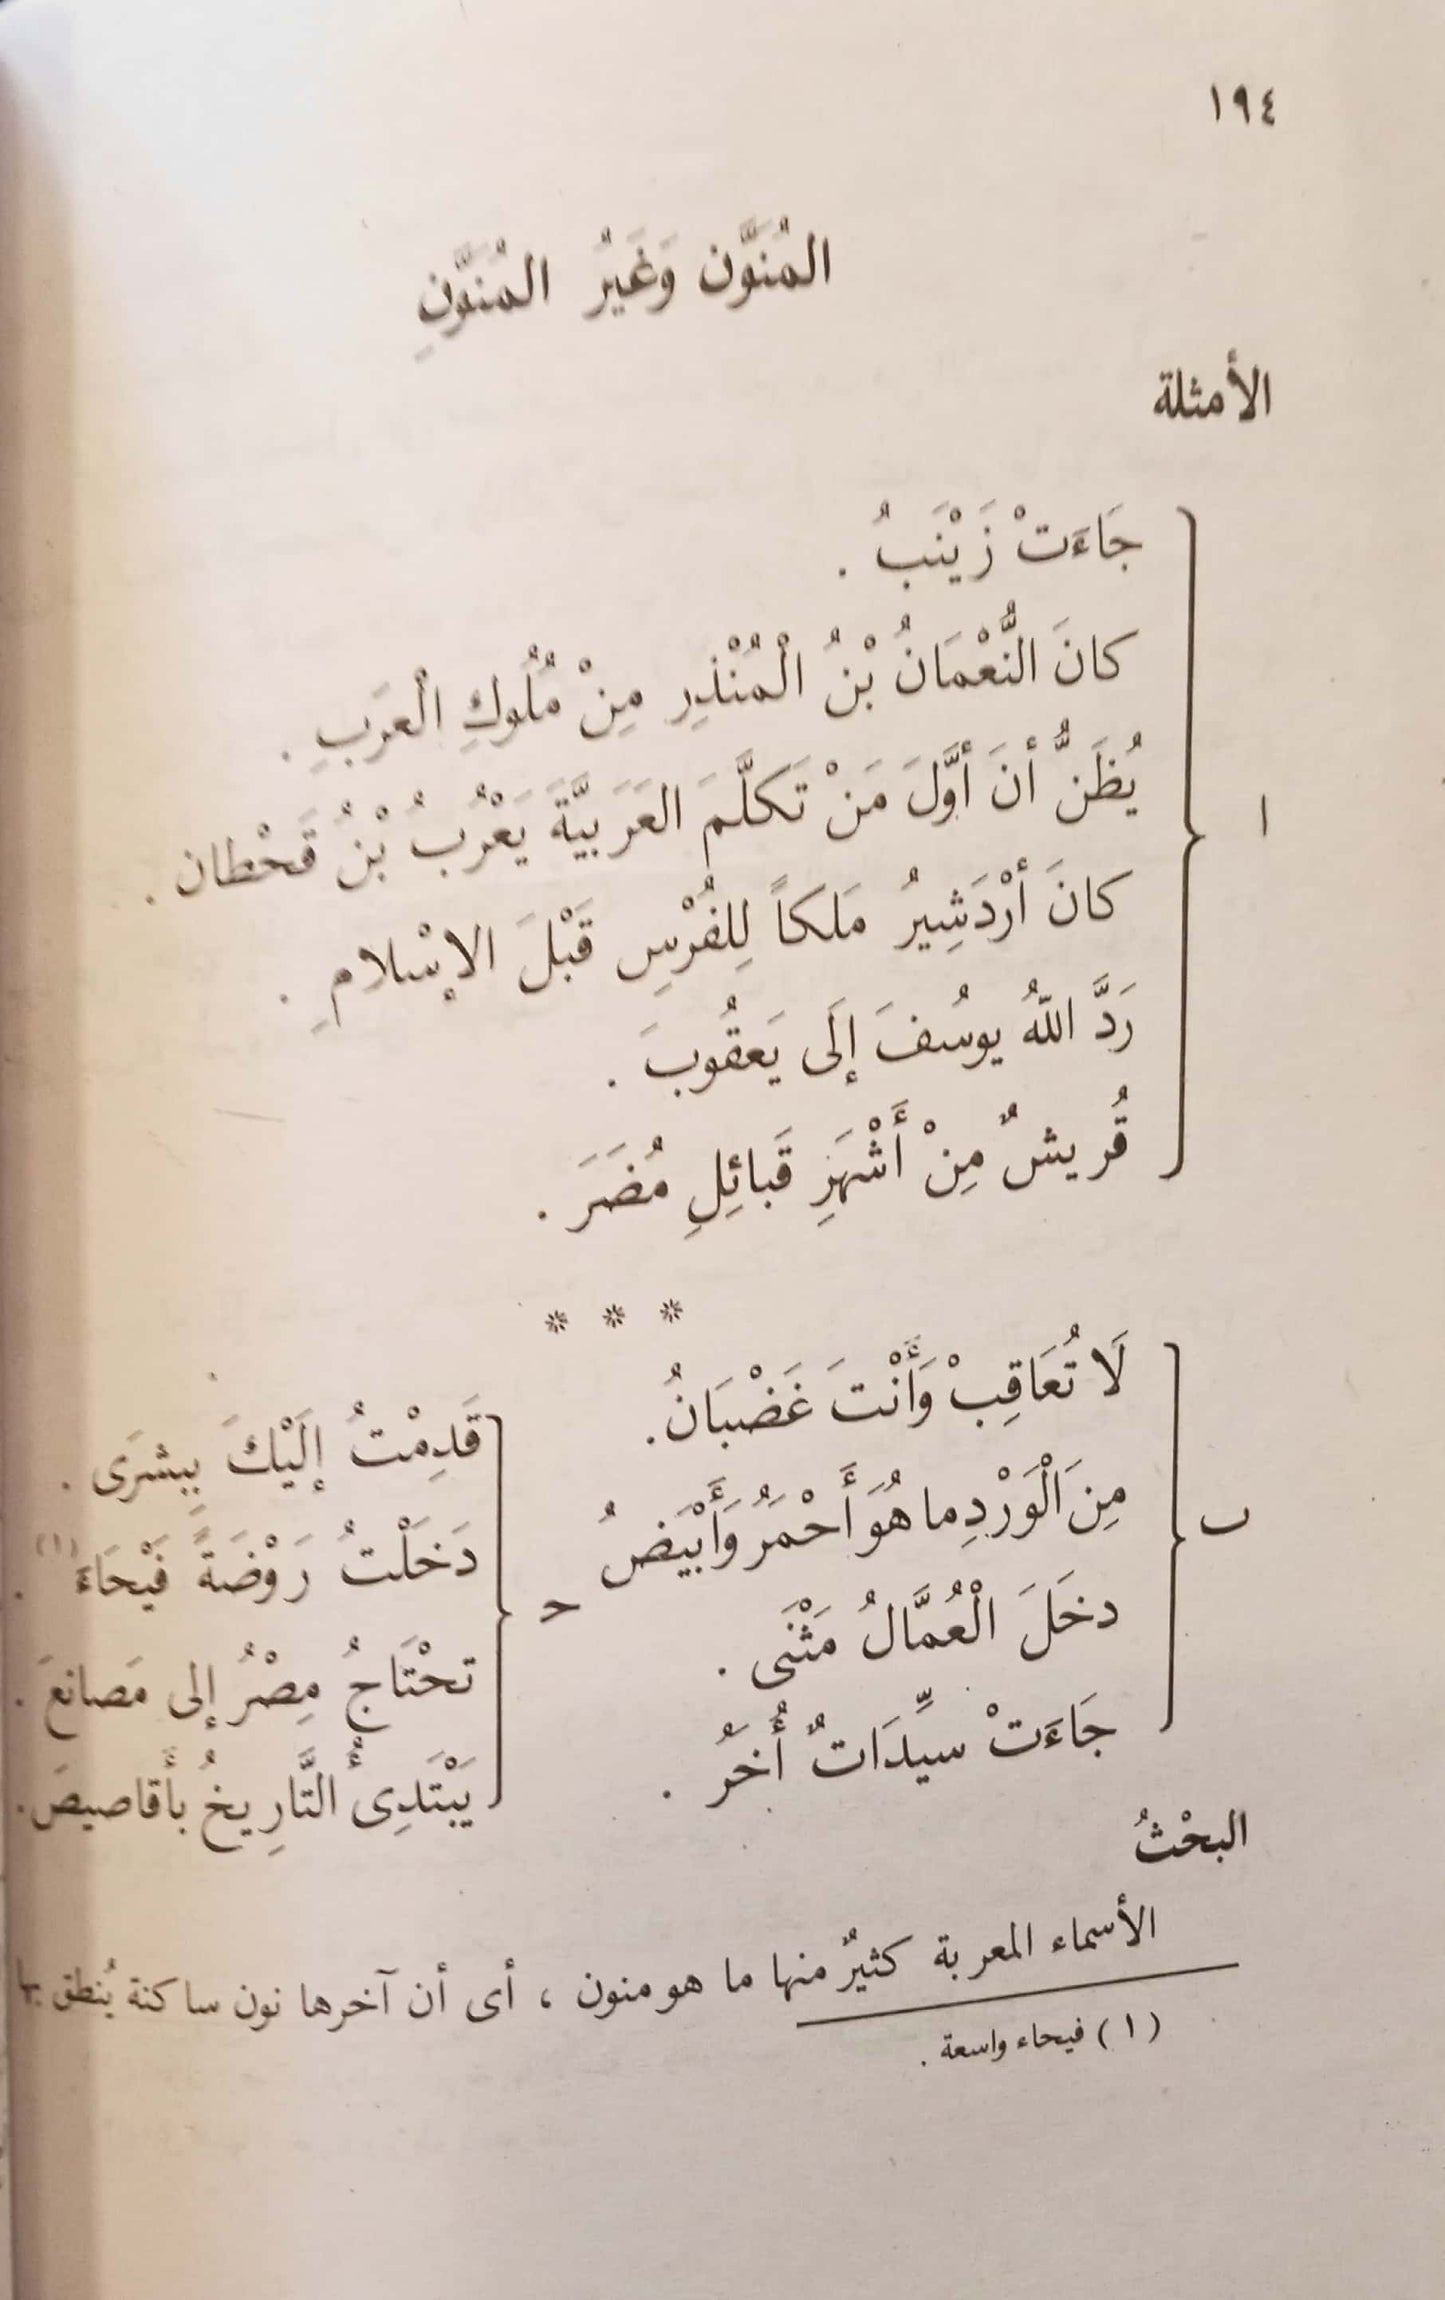 ١٩٤
المُنَوَّن وَغَيرُ المُنَوَّنِ
الأمثلة
ا
جَاءَتْ زَيْنَبُ .
كانَ النُّعْمَانُ بْنُ الْمُنْذِرِ مِنْ مُلُوكِ الْعَرَبِ .
يُظَنُّ أنَ أوَّلَ مَنْ تَكَلَّمَ العَرَبيَّةَ يَعْرُبُ بْنُ قَحْطان .
كانَ أرْدَشِيرُ مَلكاً لِلفُرْسِ قَبْلَ الإسْلامِ .
رَدَّ اللهُ يوسُفَ إلَى يَعقُوبَ .
قُريشٌ مِنْ أَشْهَرِ قَبائِلِ مُضَرَ .
* * *
ب
لَا تُعَاقِبْ وَأَنْتَ غَضْبَانُ .
مِنَ الْوَرْدِ ما هُوَ أَحْمَرُ وَأَبْيَضُ
دخَلَ الْعُمَّالُ مَثْنَى .
جَاءَتْ سيِّدَاتٌ أُخَرُ .
حـ
قَدِمْتُ إلَيْكَ بِبشرَى .
دَخَلْتُ رَوْضَةً فَيْحَاءَ (١) .
تحْتَاجُ مِصْرُ إلى مَصانعَ .
يَبْتَدِىُٔ التَّارِيخُ بأَقاصيصَ .
البحْثُ
الأسماء المعربة كثيرٌ منها ما هو منون ، أى أن آخرها نون ساكنة يُنطق بها
(١) فيحاء واسعة .